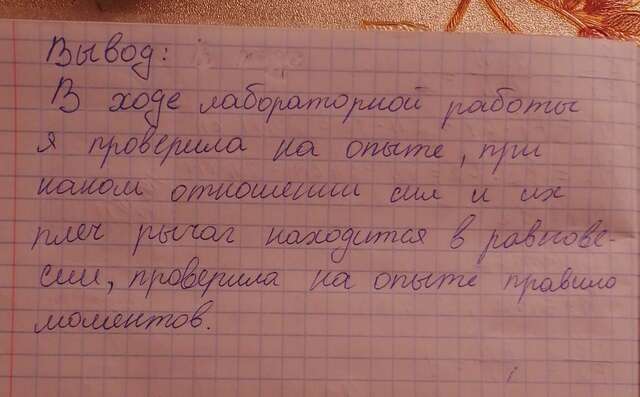 Вывод:
В ходе лабораторной работы
я проверила на опыте, при
каком отношении сил и их
плеч рычаг находится в равнове-
сии, проверила на опыте правило
моментов.